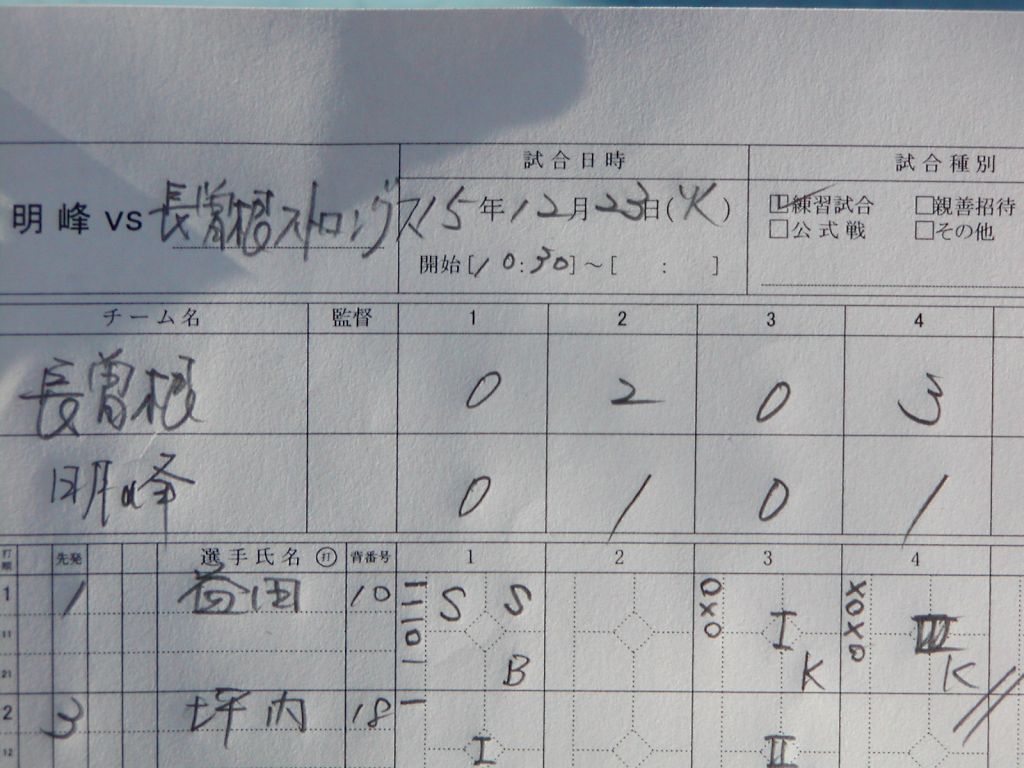 試合日時 試合種別
明峰 vs 長曽根ストロングス 15年12月23日(火) 練習試合 □親善招待
□公式戦 □その他
開始[10:30]~[ : ]
チーム名 監督 1 2 3 4
長曽根 0 2 0 3
明峰 0 1 0 1
打順 先発 選手氏名 打 背番号 1 2 3 4
1 1 益田 10 S S I K III K
11
21 B
2 3 坪内 18 I II
12